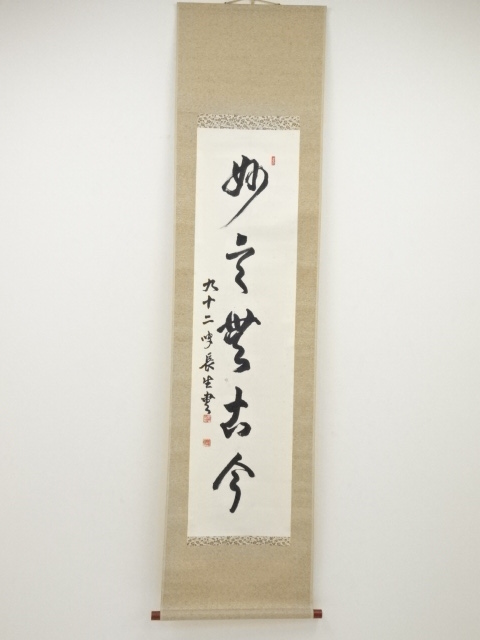 妙言無古今
九十二吽長生書